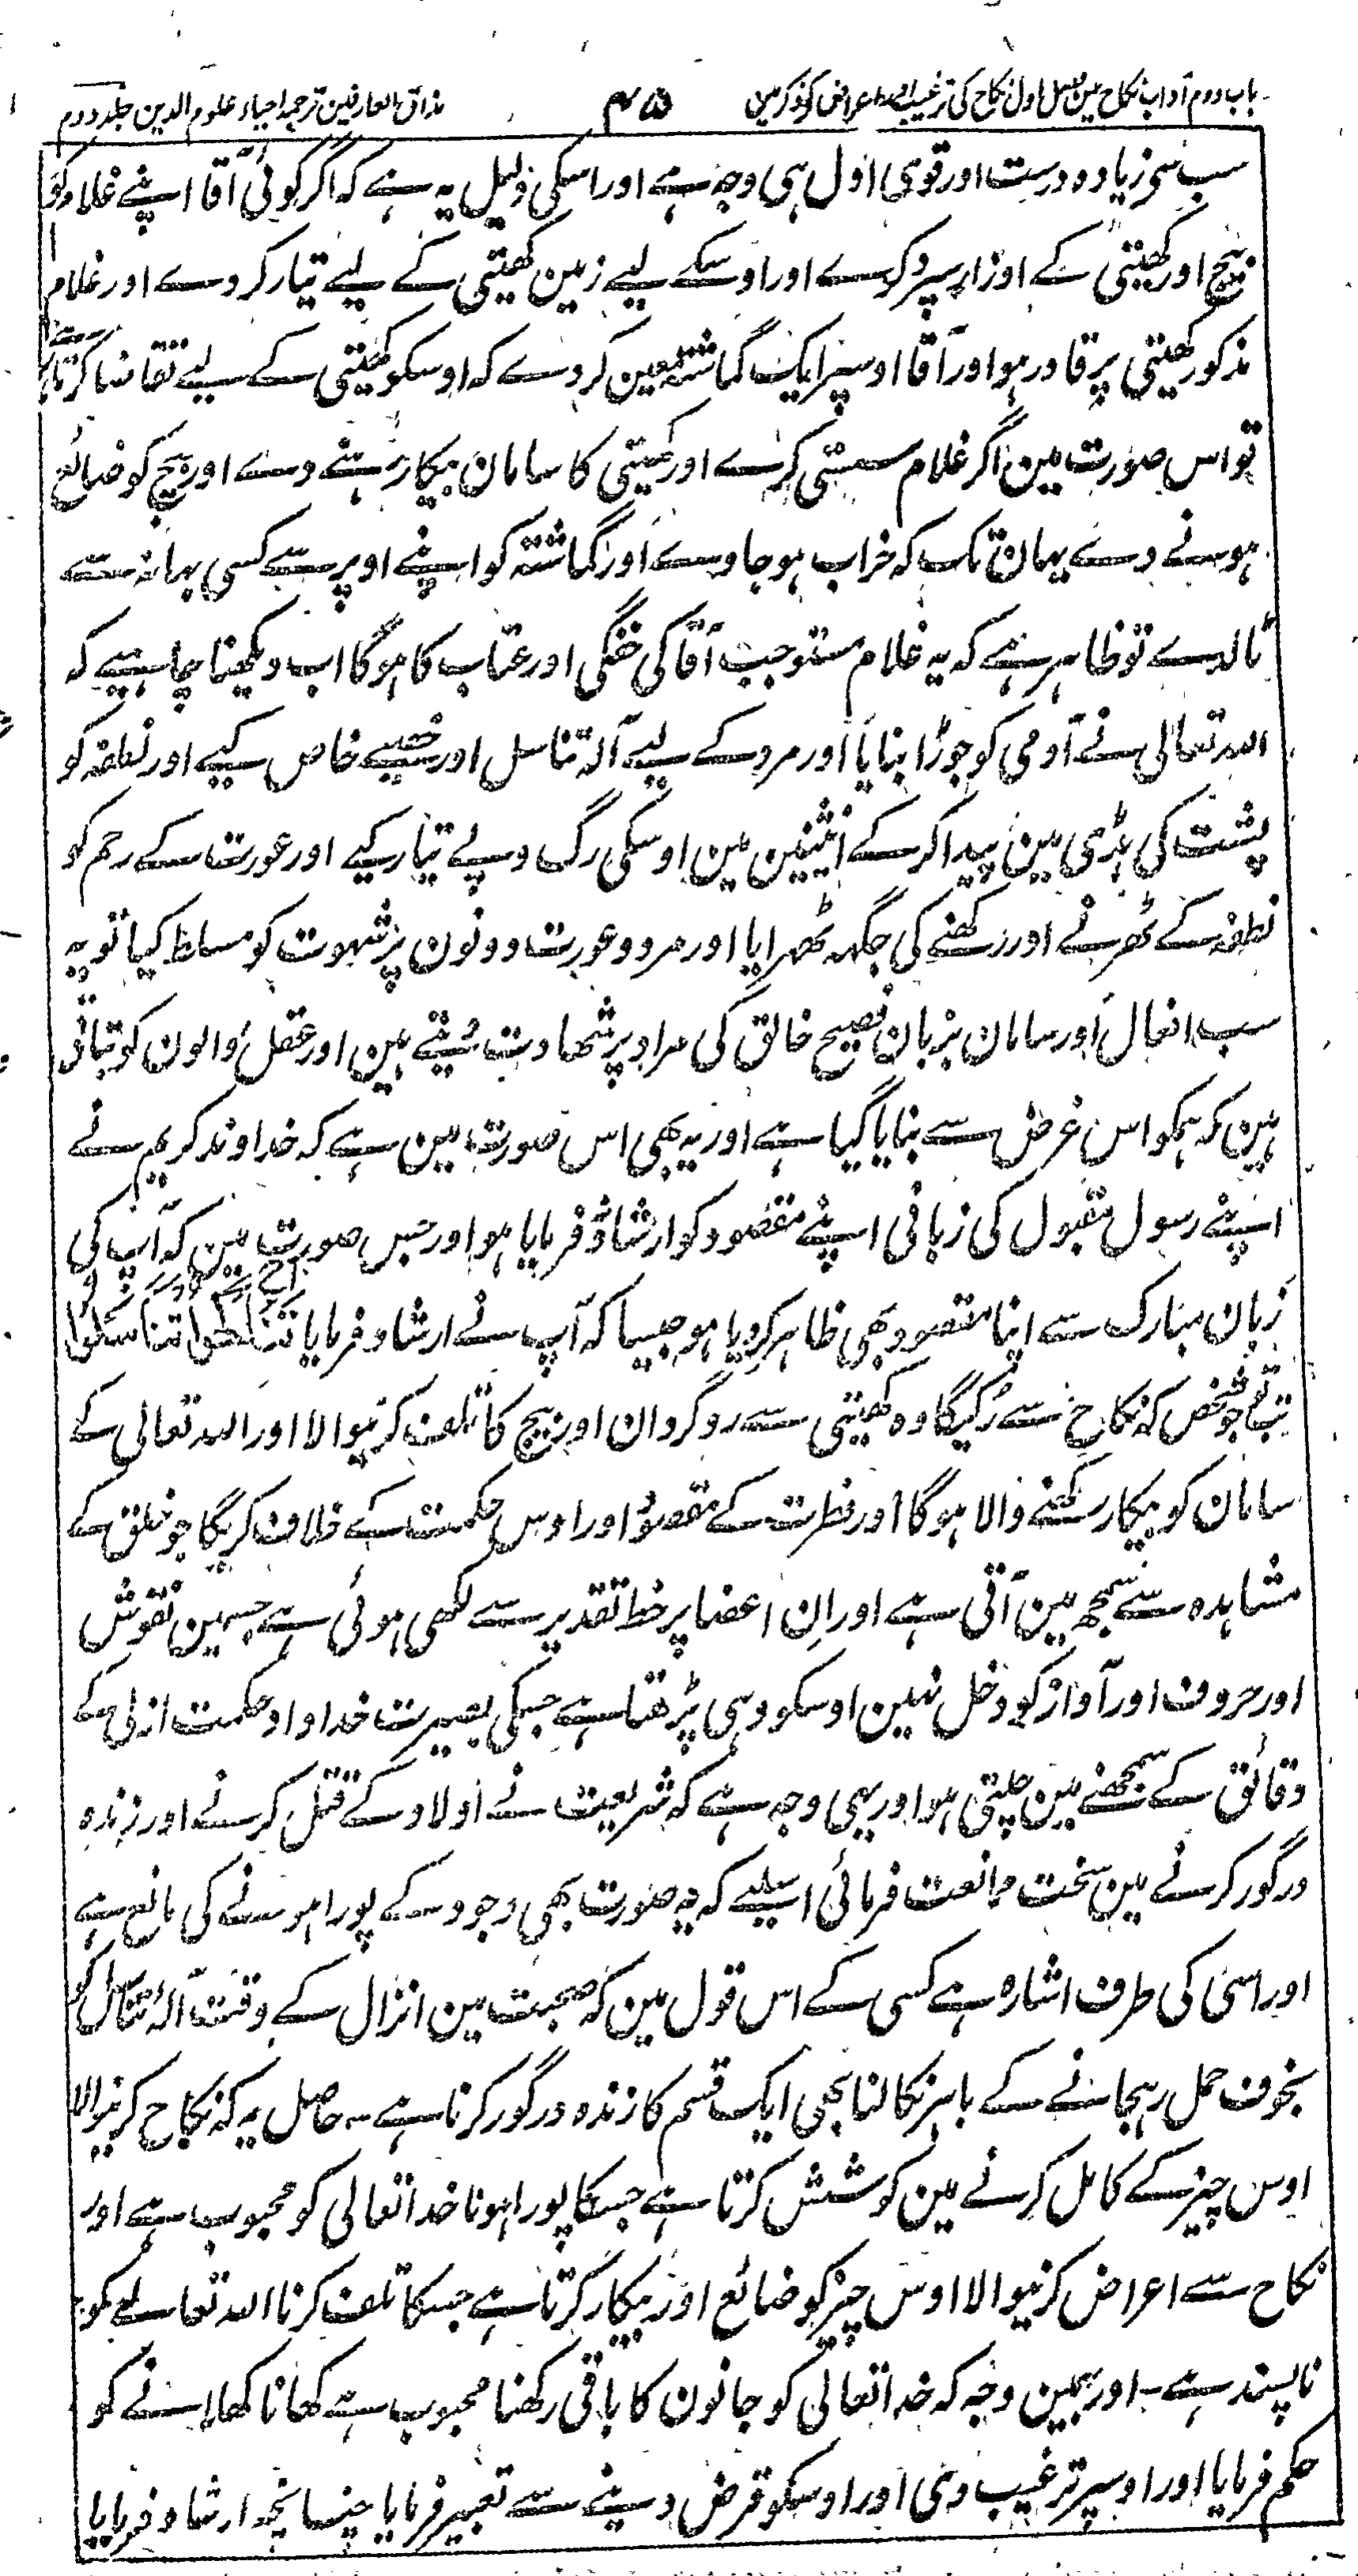 باب دوم آداب نکاح مین فصل اول نکاح کی ترغیب اور اعراض کے ذکر مین
۴۵
مذاق العارفین ترجمہ احیاء علوم الدین جلد دوم
سب سی زیادہ درست اور قوی اول ہی وجہ ہے اور اسکی دلیل یہ ہے کہ اگر کوئی آقا اپنے غلام کو
بیج اور کھیتی کے اوزار سپرد کرے اور اوسکے لیے زمین کھیتی کے لیے تیار کردے اور غلام
مذکور کھیتی پر قادر ہو اور آقا اوسپر ایک گماشتہ معین کردے کہ اوسکو کھیتی کے لیے تقاضا کرتا رہے
تو اس صورت مین اگر غلام سستی کرے اور کھیتی کا سامان بیکار رہنے دے اور بیج کو ضائع
ہونے دے یہان تک کہ خراب ہوجاوے اور گماشتہ کو اپنے اوپر سے کسی بہانہ سے
ٹالدے تو ظاہر ہے کہ یہ غلام مستوجب آقا کی خفگی اور عتاب کا ہوگا اب دیکھنا چاہیے کہ
اللہ تعالی نے آدمی کو جوڑا بنایا اور مرد کے لیے آلہ تناسل اور خصیے خاص کیے اور نطفہ کو
پشت کی ہڈی مین پیدا کرکے انثیین مین اوسکی رگ و پے تیار کیے اور عورت کے رحم کو
نطفہ کے ٹھرنے اور رکھنے کی جگہہ ٹھہرایا اور مرد و عورت دونون پر شہوت کو مسلط کیا تو یہ
سب افعال اور سامان بزبان فصیح خالق کی مراد پر شھادت دیتے ہین اور عقل والون کو بتاتی
ہین کہ ہمکو اس غرض سے بنایا گیا ہے اور یہ بھی اس صورت مین ہے کہ خداوند کریم نے
اپنے رسول مقبول کی زبانی اپنے مقصود کو ارشاد نفرمایا ہو اور جس صورت مین کہ آپ کی
زبان مبارک سے اپنا مقصود بھی ظاہر کردیا ہو جیسا کہ آپ نے ارشاد فرمایا تناکحوا تناسلوا الخ
تب تو جو شخص کہ نکاح سے رکیگا وہ کھیتی سے روگردان اور بیج کا تلف کرنیوالا اور اللہ تعالی کے
سامان کو بیکار رکھنے والا ہوگا اور فطرت کے مقصود اور اوس حکمت کے خلاف کریگا جو خلق کے
مشاہدہ سے سمجھ مین آتی ہے اور ان اعضا پر خط تقدیر سے لکھی ہوئی ہے جسمین نقوش
اور حروف اور آواز کو دخل نہین اوسکو وہی پڑھتا ہے جسکی بصیرت خداداد حکمت ازلی کے
دقائق کے سمجھنے مین چلتی ہو اور یہی وجہ ہے کہ شریعت نے اولاد کے قتل کرنے اور زندہ
درگور کرنے مین سخت ممانعت فرمائی اسلیے کہ یہ صورت بھی وجود کے پورا ہونے کی مانع ہے
اور اسی کی طرف اشارہ ہے کسی کے اس قول مین کہ صحبت مین انزال کے وقت آلہ تناسل کو
بخوف حمل رہجانے کے باہر نکالنا بھی ایک قسم کا زندہ درگور کرنا ہے ۔ حاصل یہ کہ نکاح کرنیوالا
اوس چیز کے کامل کرنے مین کوشش کرتا ہے جسکا پورا ہونا خدا تعالی کو محبوب ہے اور
نکاح سے اعراض کرنیوالا اوس چیز کو ضائع اور بیکار کرتا ہے جسکا تلف کرنا اللہ تعالے کو
ناپسند ہے ۔ اور بہمین وجہ کہ خدا تعالی کو جانون کا باقی رکھنا محبوب ہے کھانا کھلانے کو
حکم فرمایا اور اوسپر ترغیب دی اور اوسکو قرض دینے سے تعبیر فرمایا چنانچہ ارشاد فرمایا